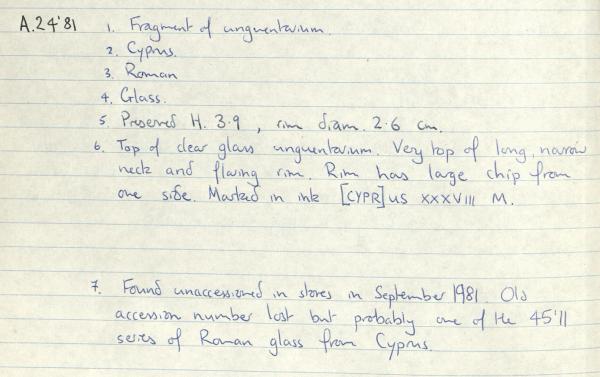 A.24'81 1. Fragment of unguentarium.
2. Cyprus.
3. Roman
4. Glass.
5 Preserved H. 3.9, rim diam. 2.6 cm.
6. Top of clear glass unguentarium. Very top of long, narrow
neck and flaring rim. Rim has large chip from
one side. Marked in ink [CYPR]US XXXVIII M.
7. Found unaccessioned in stores in September 1981. Old
accession number lost but probably one of the 45'11
series of Roman glass from Cyprus.